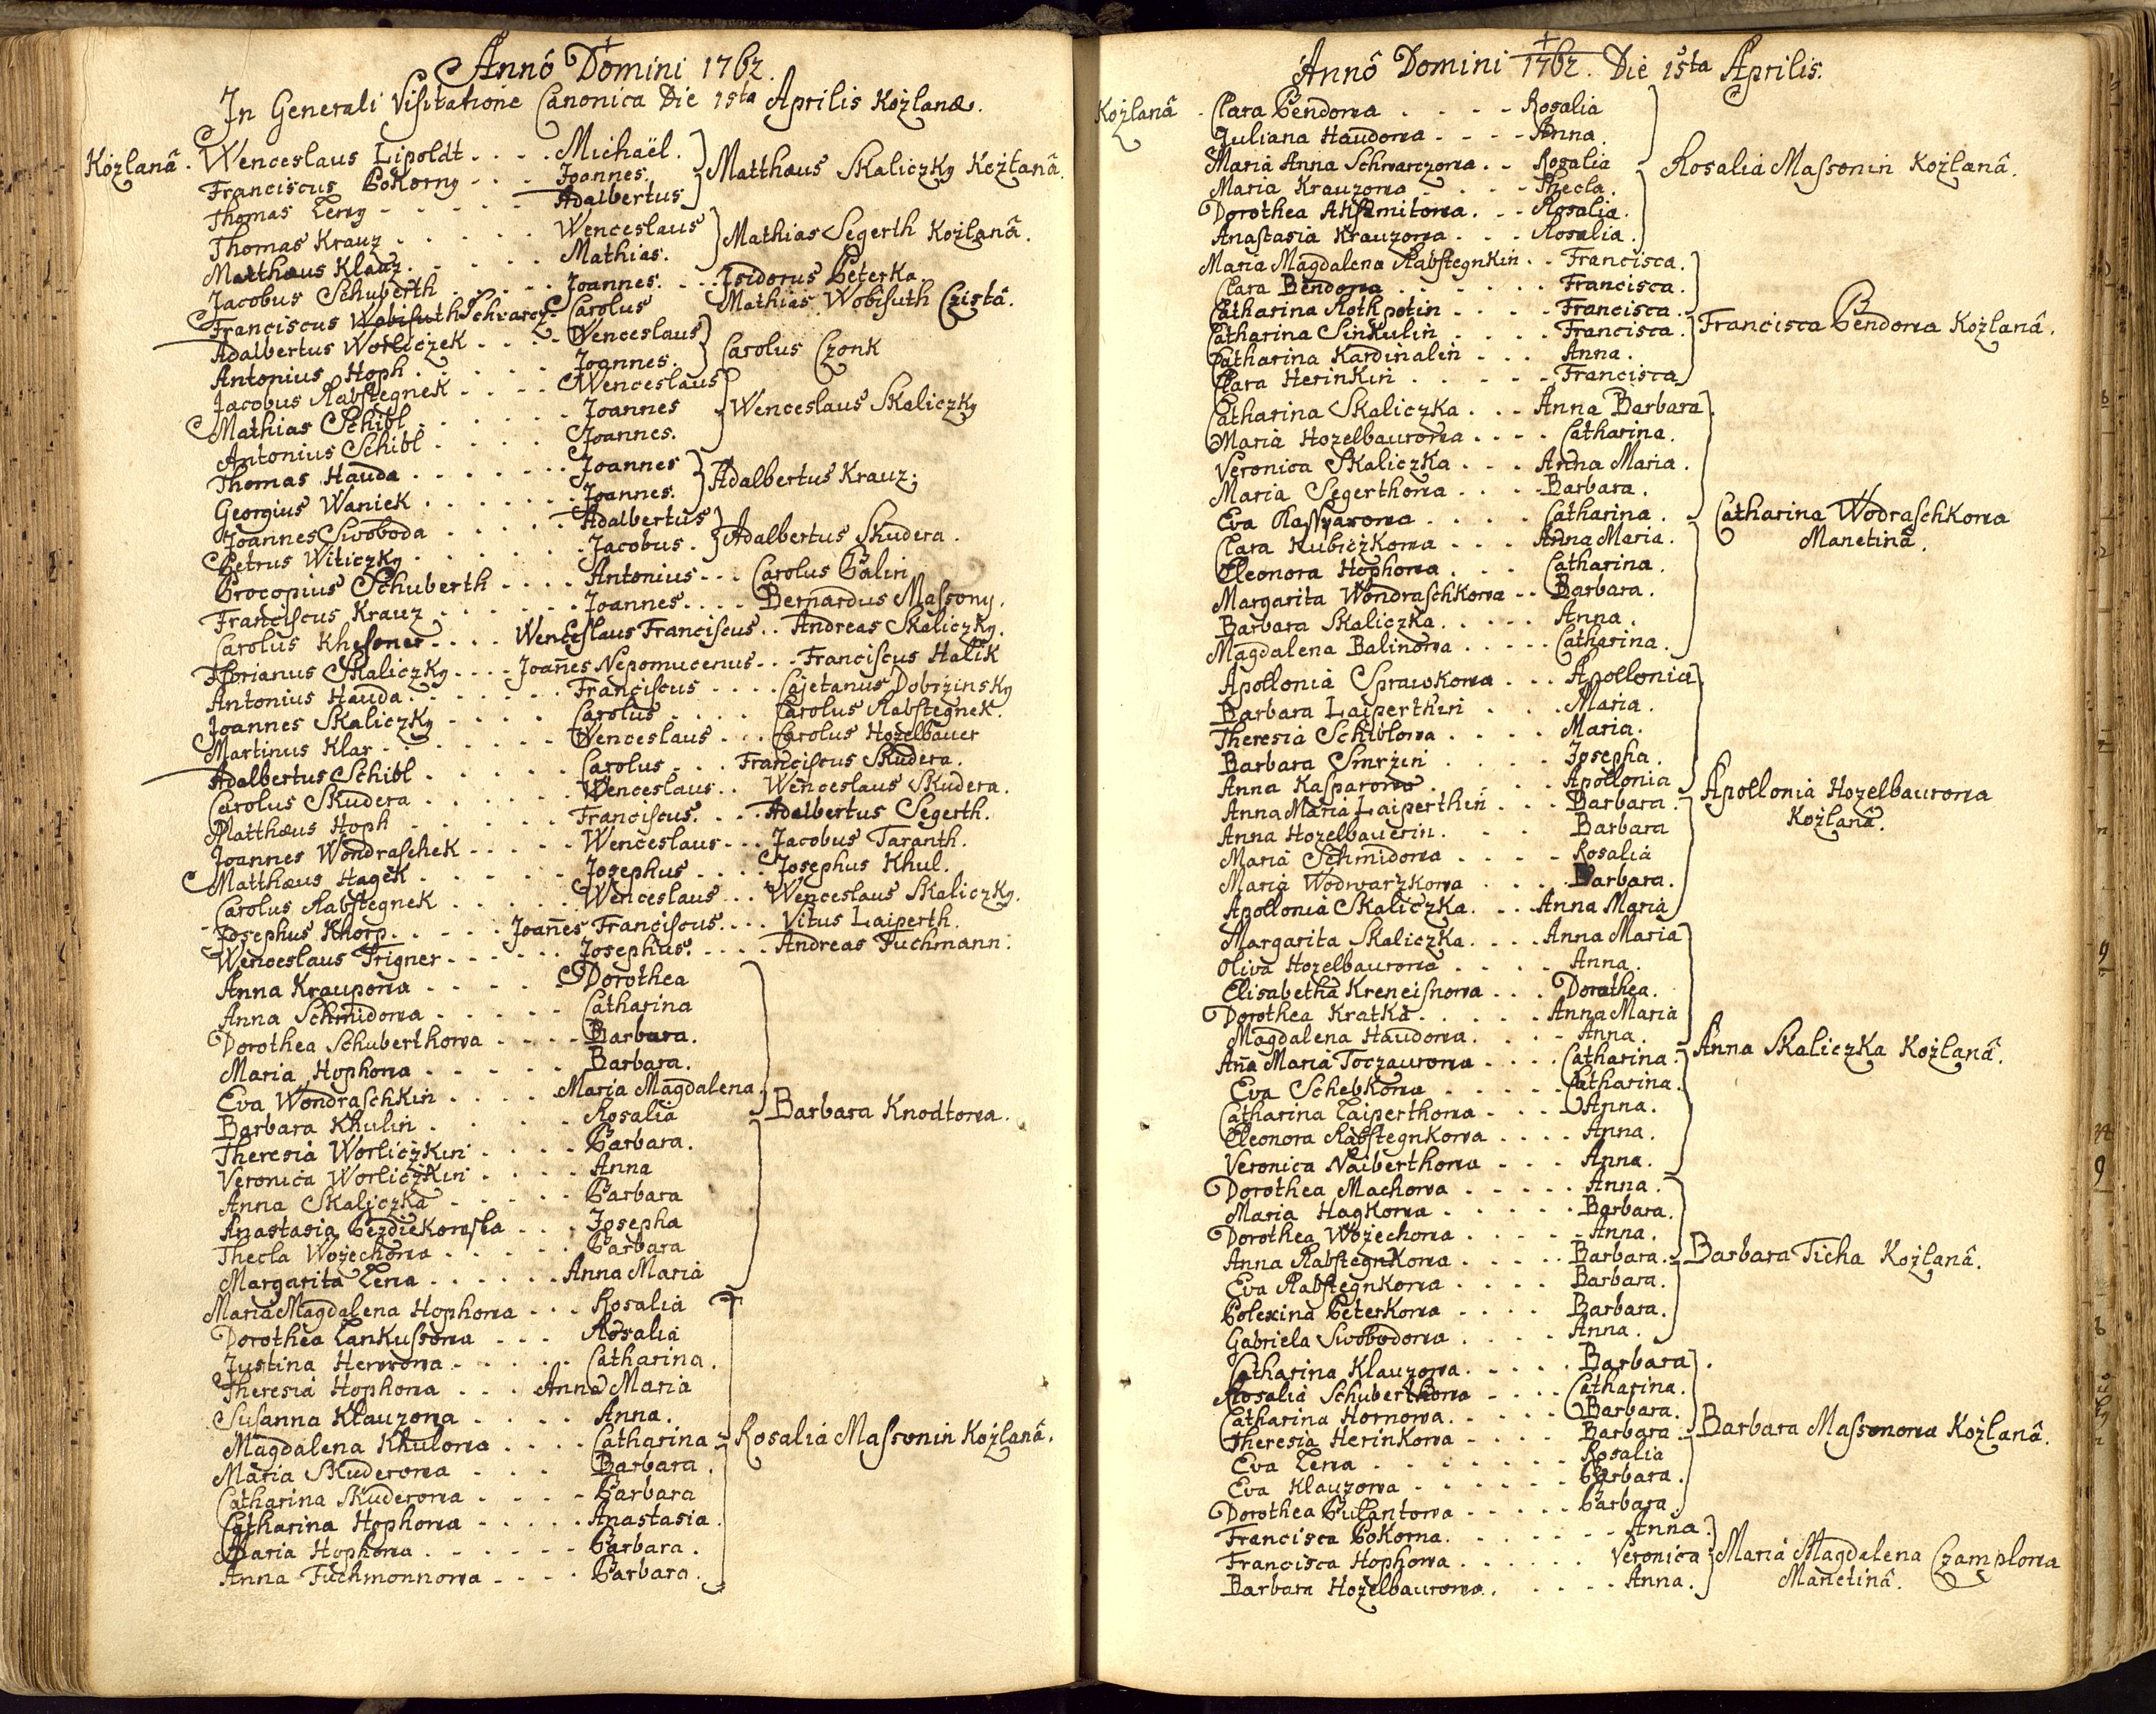 Annô Domini 1762.
In Generali Visitatione Canonica Die 1sta Aprilis Kożlanæ.
Kożlanâ. Wenceslaus Lipoldt .... Michaël. Matthæus Skaliczky Kożlanâ.
Franciscus Pokorny - - - Joannes.
Thomas Leny - - - - - Adalbertus
Thomas Krauz ..... Wenceslaus Mathias Segerth Kożlanâ.
Matthæus Klauz ..... Mathias.
Jacobus Schuberth ..... Joannes. - - Isidorus Peterka
Franciscus Schvarcz - Carolus Mathias Wobisuth Czistâ.
Adalbertus Worliczek .... Wenceslaus Carolus Czonk
Antonius Hoph ..... Joannes.
Jacobus Rabstegnek .... Wenceslaus Wenceslaus Skaliczky
Mathias Schibl ..... Joannes
Antonius Schibl .... Joannes.
Thomas Hauda ....... Joannes Adalbertus Krauz.
Georgius Waniek ...... Joannes.
Joannes Swoboda ..... Adalbertus Adalbertus Skudera.
Petrus Witiczky ...... Jacobus.
Procopius Schuberth .... Antonius - - - Carolus Balin
Franciscus Krauz ...... Joannes .... Bernardus Massony.
Carolus Khesoner .... Wenceslaus Franciscus .. Andreas Skaliczky.
Florianus Skaliczky .... Joañes Nepomucenus - - - Franciscus Halik
Antonius Hauda ....... Franciscus .... Cajetanus Dobrzinsky
Joannes Skaliczky .... Carolus .... Carolus Rabstegnek.
Martinus Klar ....... Wenceslaus ... Carolus Hozelbauer
Adalbertus Schibl ..... Carolus ... Franciscus Skudera.
Carolus Skudera ...... Wenceslaus .. Wenceslaus Skudera.
Matthæus Hoph ...... Franciscus. ... Adalbertus Segerth.
Joannes Wondraschek ..... Wenceslaus - - - Jacobus Taranth.
Matthæus Hagek ...... Josephus .... Josephus Khul.
Carolus Rabstegnek ..... Wenceslaus ... Wenceslaus Skaliczky.
Josephus Khorp ..... Joañes Franciscus .... Vitus Laiperth.
Wenceslaus Trigner ...... Josephus. .... Andreas Fuchmann.
Anna Kraupowa ..... Dorothea
Anna Schmidowa ..... Catharina
Dorothea Schuberthowa .... Barbara.
Maria Hophowa ..... Barbara.
Eva Wondraschkin .... Maria Magdalena
Barbara Khulin ..... Rosalia Barbara Knodtowa.
Theresia Worliczkin .... Barbara.
Veronica Worliczkin .... Anna
Anna Skaliczka ..... Barbara
Anastasia Bezdiekowska ... Josepha
Thecla Wożechowa ..... Barbara
Margarita Lena ...... Anna Maria
Maria Magdalena Hophowa ... Rosalia
Dorothea Lankussowa ... Rosalia
Justina Herrowa ..... Catharina.
Theresia Hophowa ... Anna Maria
Susanna Klauzowa .... Anna.
Magdalena Khulowa .... Catharina Rosalia Massonin Kożlanâ.
Maria Skuderowa ... Barbara.
Catharina Skuderowa .... Barbara
Catharina Hophowa ..... Anastasia.
Maria Hophowa ...... Barbara.
Anna Fuchmonnowa .... Barbara.
Annô Domini 1762. Die 1sta Aprilis.
Kożlanâ. Clara Bendowa .... Rosalia
Juliana Haudowa - - - - Anna.
Maria Anna Schwarczowa .. Rosalia Rosalia Massonin Kożlanâ.
Maria Krauzowa .... Thecla.
Dorothea Aksamitowa. - - Rosalia.
Anastasia Krauzowa. - - Rosalia.
Maria Magdalena Rabstegnkin .. Francisca.
Clara Bendowa ...... Francisca.
Catharina Rothpotin .... Francisca.
Catharina Sinkulin .... Francisca. Francisca Bendowa Kożlanâ.
Catharina Kardinalin ... Anna.
Clara Herinkin ..... Francisca
Catharina Skaliczka ... Anna Barbara
Maria Hozelbaurowa .... Catharina.
Veronica Skaliczka ... Anna Maria.
Maria Segerthowa ... Barbara.
Eva .... Catharina. Catharina Wodraschkowa
Clara Kubiczkowa ... Anna Maria. Manetinâ.
Eleonora Hophowa ... Catharina.
Margarita Wondraschkowa .. Barbara.
Barbara Skaliczka ..... Anna.
Magdalena Balinowa ..... Catharina.
Apollonia Sprawkowa ... Apollonia
Barbara Laiperthin ... Maria.
Theresia Schiblowa .... Maria.
Barbara Smrżin .... Josepha.
Anna Kasparowa ..... Apollonia Apollonia Hozelbaurowa
Anna Maria Laiperthin ... Barbara. Kożlanâ.
Anna Hozelbauerin .... Barbara
Maria Schmidowa .... Rosalia
Maria Wodwarżkowa .... Barbara.
Apollonia Skaliczka ... Anna Maria
Margarita Skaliczka .... Anna Maria
Oliva Hozelbaurowa .... Anna.
Elisabetha Kreneisnowa ... Dorothea.
Dorothea Kratka ..... Anna Maria
Magdalena Haudowa .... Anna. Anna Skaliczka Kożlanâ.
Aña Maria Toczaurowa .... Catharina.
Eva Schebkowa ..... Catharina.
Catharina Laiperthowa ... Anna.
Eleonora Rabstegnkowa .... Anna.
Veronica Naiberthowa ... Anna.
Dorothea Machowa ..... Anna.
Maria Hagkowa ..... Barbara.
Dorothea Wożechowa ..... Anna.
Anna Rabstegnkowa ..... Barbara. Barbara Ticha Kożlanâ.
Eva Rabstegnkowa .... Barbara.
Polexina Peterkowa .... Barbara.
Gabriela Swobodowa .... Anna.
Catharina Klauzowa .... Barbara
Rosalia Schuberthowa .... Catharina.
Catharina Hornowa ..... Barbara.
Theresia Herinkowa .... Barbara. Barbara Massonowa Kożlanâ.
Eva Lena ....... Rosalia
Eva Klauzowa ...... Barbara.
Dorothea Pulantowa ..... Barbara.
Francisca Pokorna ....... Anna.
Francisca Hophowa ...... Veronica Maria Magdalena Czamplowa
Barbara Hozelbaurowa ..... Anna. Manetinâ.